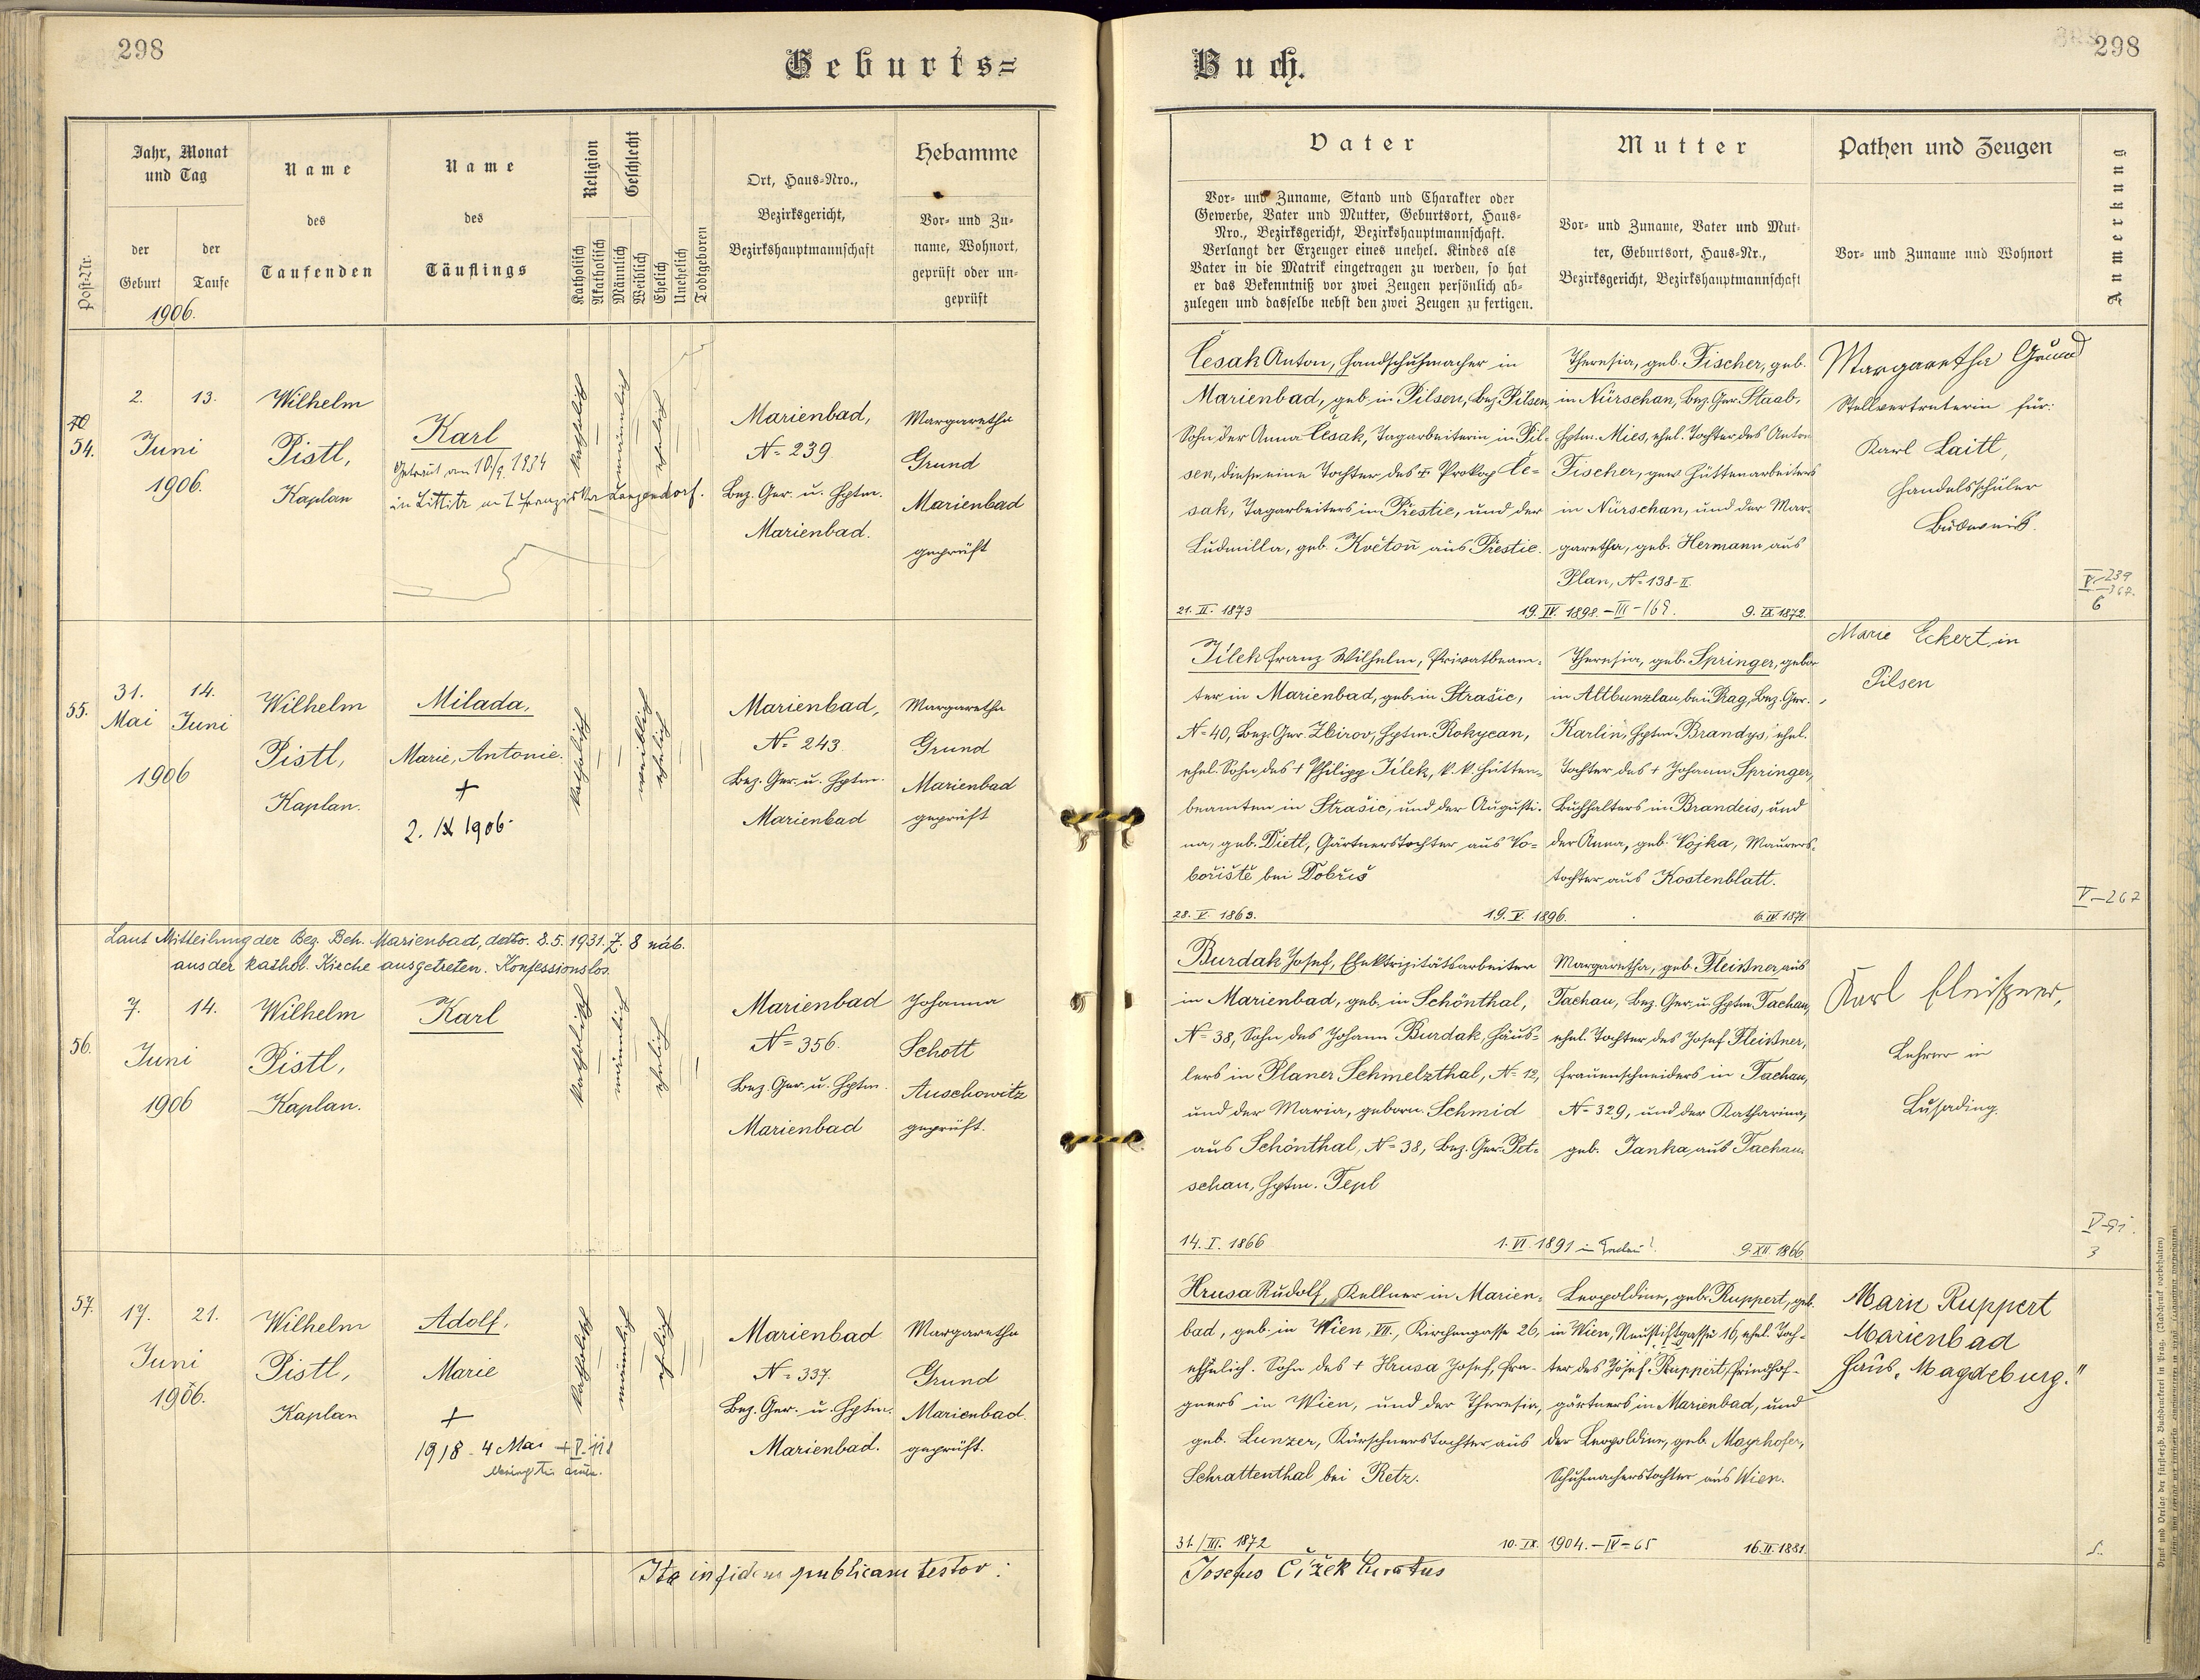 298
Geburts=
Jahr, Monat
und Tag
Name
Name
Religion
Geschlecht
Ort, Haus=Nro.,
Bezirksgericht,
Bezirkshauptmannschaft
Hebamme
Post=Nr.
der
Geburt
der
Taufe
des
Taufenden
des
Täuflings
Katholisch
Akatholisch
Männlich
Weiblich
Ehelich
Unehelich
Todtgeboren
Vor= und Zu=
name, Wohnort,
geprüft oder un=
geprüft
1906.
54.
2. 13.
Juni
1906.
Wilhelm
Pistl,
Kaplan
Karl
Getraut am 10./9. 1934
in Littitz mit Franziska Langendorf.
katholisch
männlich
ehelich
Marienbad,
No 239
Bez. Ger. u. Hptm.
Marienbad.
Margaretha
Grund
Marienbad
geprüft
55.
31. 14.
Mai Juni
1906
Wilhelm
Pistl,
Kaplan.
Milada,
Marie, Antonie.
+
2. IX 1906.
katholisch
weiblich
ehelich
Marienbad,
No 243.
Bez. Ger. u. Hptm.
Marienbad
Margaretha
Grund
Marienbad
geprüft
Laut Mitteilung der Bez. Beh. Marienbad, ddto. 8.5.1931. Z. 8 náb.
aus der kathol. Kirche ausgetreten. Konfessionslos.
56.
7. 14.
Juni
1906
Wilhelm
Pistl,
Kaplan.
Karl
katholisch
männlich
ehelich
Marienbad
No 356.
Bez. Ger. u. Hptm.
Marienbad
Johanna
Schott
Auschowitz
geprüft.
57.
17. 21.
Juni
1906.
Wilhelm
Pistl,
Kaplan
Adolf,
Marie
+
1918 - 4 Mai + V. 118
katholisch
männlich
ehelich
Marienbad
No 337.
Bez. Ger. u. Hptm.
Marienbad.
Margaretha
Grund
Marienbad.
geprüft.
Ita in fidem publicam testor:
298
Buch.
Vater
Mutter
Pathen und Zeugen
Anmerkung
Vor= und Zuname, Stand und Charakter oder
Gewerbe, Vater und Mutter, Geburtsort, Haus=
Nro., Bezirksgericht, Bezirkshauptmannschaft.
Verlangt der Erzeuger eines unehel. Kindes als
Vater in die Matrik eingetragen zu werden, so hat
er das Bekenntniß vor zwei Zeugen persönlich ab=
zulegen und dasselbe nebst den zwei Zeugen zu fertigen.
Vor= und Zuname, Vater und Mut=
ter, Geburtsort, Haus=Nr.,
Bezirksgericht, Bezirkshauptmannschaft
Vor= und Zuname und Wohnort
Česak Anton, Handschuhmacher in
Marienbad, geb. in Pilsen, Bez. Pilsen,
Sohn der Anna Česak, Tagarbeiterin in Pil=
sen, diese eine Tochter des + Prokop Če=
sak, Tagarbeiters in Přestic, und der
Ludmilla, geb. Květoň aus Přestic.
21. II. 1873
19. IV. 1898. - III - 169.
Theresia, geb. Fischer, geb.
in Nürschan, Bez. Ger. Staab,
Hptm. Mies, ehel. Tochter des Anton
Fischer, gew. Hüttenarbeiters
in Nürschan, und der Mar=
garetha, geb. Hermann aus
Plan, No 138-II.
9. IX 1872.
Margaretha Grund
Stellvertreterin für:
Karl Laitl,
Handelsschüler
Budweis.
V-239
6
Jílek Franz Wilhelm, Privatbeam=
ter in Marienbad, geb. in Strašic,
No 40, Bez. Ger. Zbirov, Hptm. Rokycan,
ehel. Sohn des + Philipp Jílek, k. k. Hütten=
beamten in Strašic, und der Augusti=
na, geb. Dietl, Gärtnerstochter aus Vo=
bořiště bei Dobříš
28. V. 1863.
19. V. 1896.
Theresia, geb. Springer, gebor.
in Altbunzlau bei Prag, Bez. Ger.
Karlin, Hptm. Brandys, ehel.
Tochter des + Johann Springer,
Buchhalters in Brandeis, und
der Anna, geb. Vojka, Maurers=
tochter aus Kostenblatt.
6. IV 1871
Marie Eckert in
Pilsen
V-267
Burdak Josef, Elektrizitätsarbeiter
in Marienbad, geb. in Schönthal,
No 38, Sohn des Johann Burdak, Häus=
lers in Planer Schmelzthal, No 12,
und der Maria, geborn. Schmid
aus Schönthal, No 38, Bez. Ger. Pet=
schau, Hptm. Tepl
14. I. 1866
1. VI. 1891
Margaretha, geb. Fleißner aus
Tachau, Bez. Ger. u. Hptm. Tachau,
ehel. Tochter des Josef Fleißner,
Frauenschneiders in Tachau,
No 329, und der Katharina,
geb. Janka aus Tachau.
9. XII 1866
Karl Fleißner,
Lehrer in
Lusading.
3
Hrusa Rudolf, Kellner in Marien=
bad, geb. in Wien, VII., Kirchengasse 26,
ehelich. Sohn des + Hrusa Josef, Fra=
gners in Wien, und der Theresia,
geb. Lunzer, Kürschnerstochter aus
Schrattenthal bei Retz.
31. / III. 1872
10. IX. 1904. - IV - 65
Leopoldine, geb. Ruppert, geb.
in Wien, Neustiftgasse 16, ehel. Toch=
ter des Josef Ruppert, Friedhof=
gärtners in Marienbad, und
der Leopoldine, geb. Mayrhofer,
Schuhmacherstochter aus Wien.
16. II. 1881.
Marie Ruppert
Marienbad
Haus „Magdeburg."
Josefus Čížek Curatus
Druck und Verlag der fürsterzb. Buchdruckerei in Prag. (Nachdruck vorbehalten)